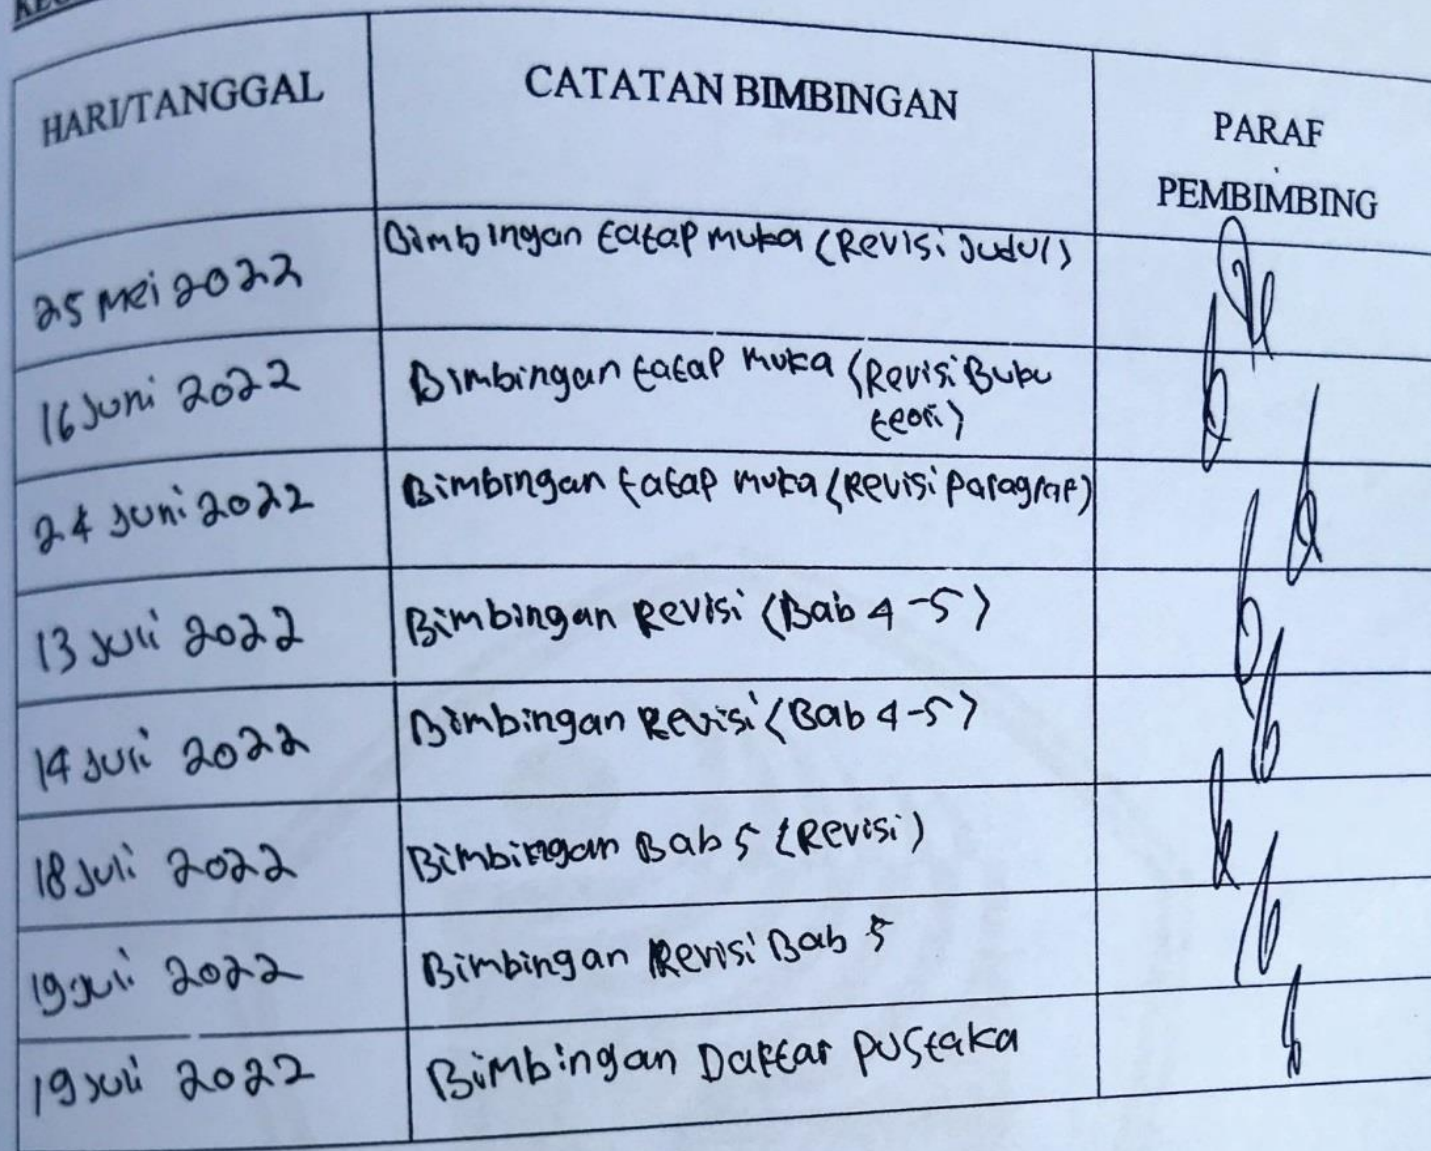 HARI/TANGGAL
CATATAN BIMBINGAN
PARAF
PEMBIMBING
25 Mei 2022
Bimbingan tatap muka (Revisi Judul)
16 Juni 2022
Bimbingan tatap muka (Revisi Buku
teori)
24 Juni 2022
Bimbingan tatap muka (Revisi paragraf)
13 Juli 2022
Bimbingan Revisi (Bab 4-5)
14 Juli 2022
Bimbingan Revisi (Bab 4-5)
18 Juli 2022
Bimbingan Bab 5 (Revisi)
19 Juli 2022
Bimbingan Revisi Bab 5
19 Juli 2022
Bimbingan Daftar Pustaka